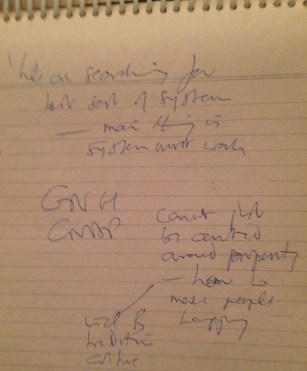 on searching for
best sort of system
— main thing is
system must work
GNH
GNP
cannot just
be centred
around prosperity
— how to
make people
happy
tradition
culture